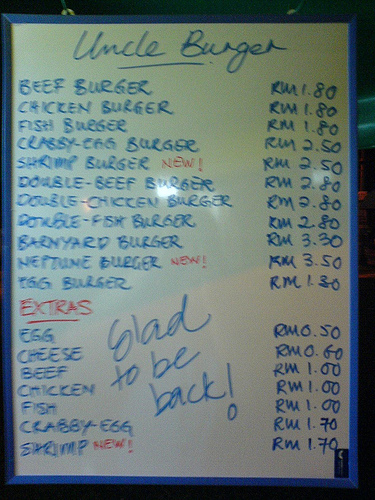 Uncle Burger
BEEF BURGER RM 1.80
CHICKEN BURGER RM 1.80
FISH BURGER RM 1.80
CRABBY-EGG BURGER RM 2.50
SHRIMP BURGER NEW! RM 2.50
DOUBLE-BEEF BURGER RM 2.80
DOUBLE-CHICKEN BURGER RM 2.80
DOUBLE-FISH BURGER RM 2.80
BARNYARD BURGER RM 3.30
NEPTUNE BURGER NEW! RM 3.50
EGG BURGER RM 1.30
EXTRAS
EGG RM 0.50
CHEESE RM 0.60
BEEF RM 1.00
CHICKEN RM 1.00
FISH RM 1.00
CRABBY-EGG RM 1.70
SHRIMP NEW! RM 1.70
Glad
to be
back!